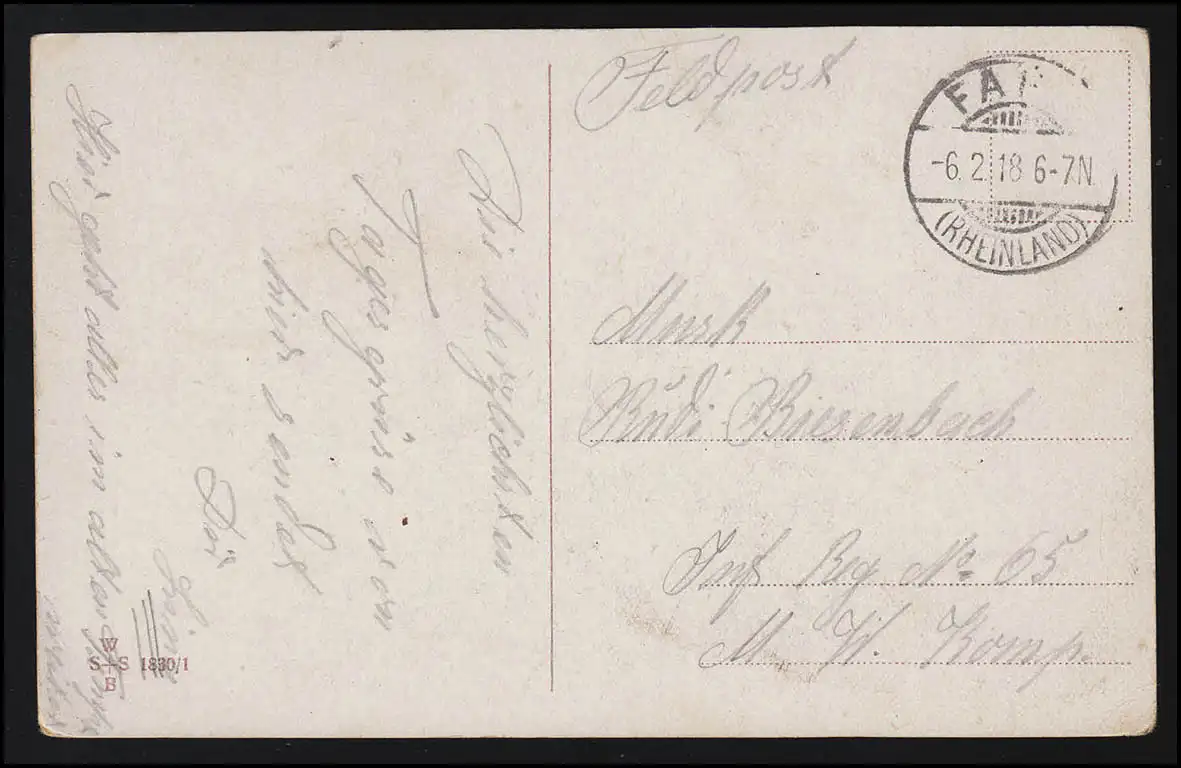 Feldpost
FA
-6.2.18 6-7N
(RHEINLAND)
Musk
Rudi Biesenbach
Inf Reg No 65
M. W. Komp.
Die herzlichsten
Tagesgrüse von
hier sendet
Dir
Hier geht alles im alten
weiter
W
S+S 1830/1
B